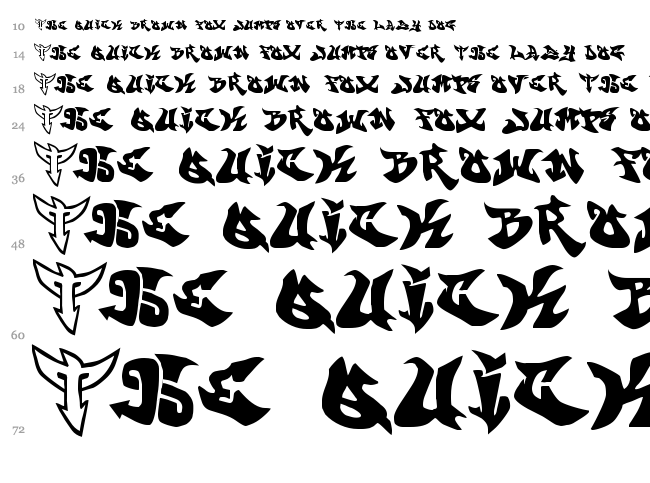 10 The quick brown fox jumps over the lazy dog
14 The quick brown fox jumps over the lazy dog
18 The quick brown fox jumps over the
24 The quick brown fox jumps o
36 The quick brown fo
48 The quick bro
60 The quick b
72 The quick